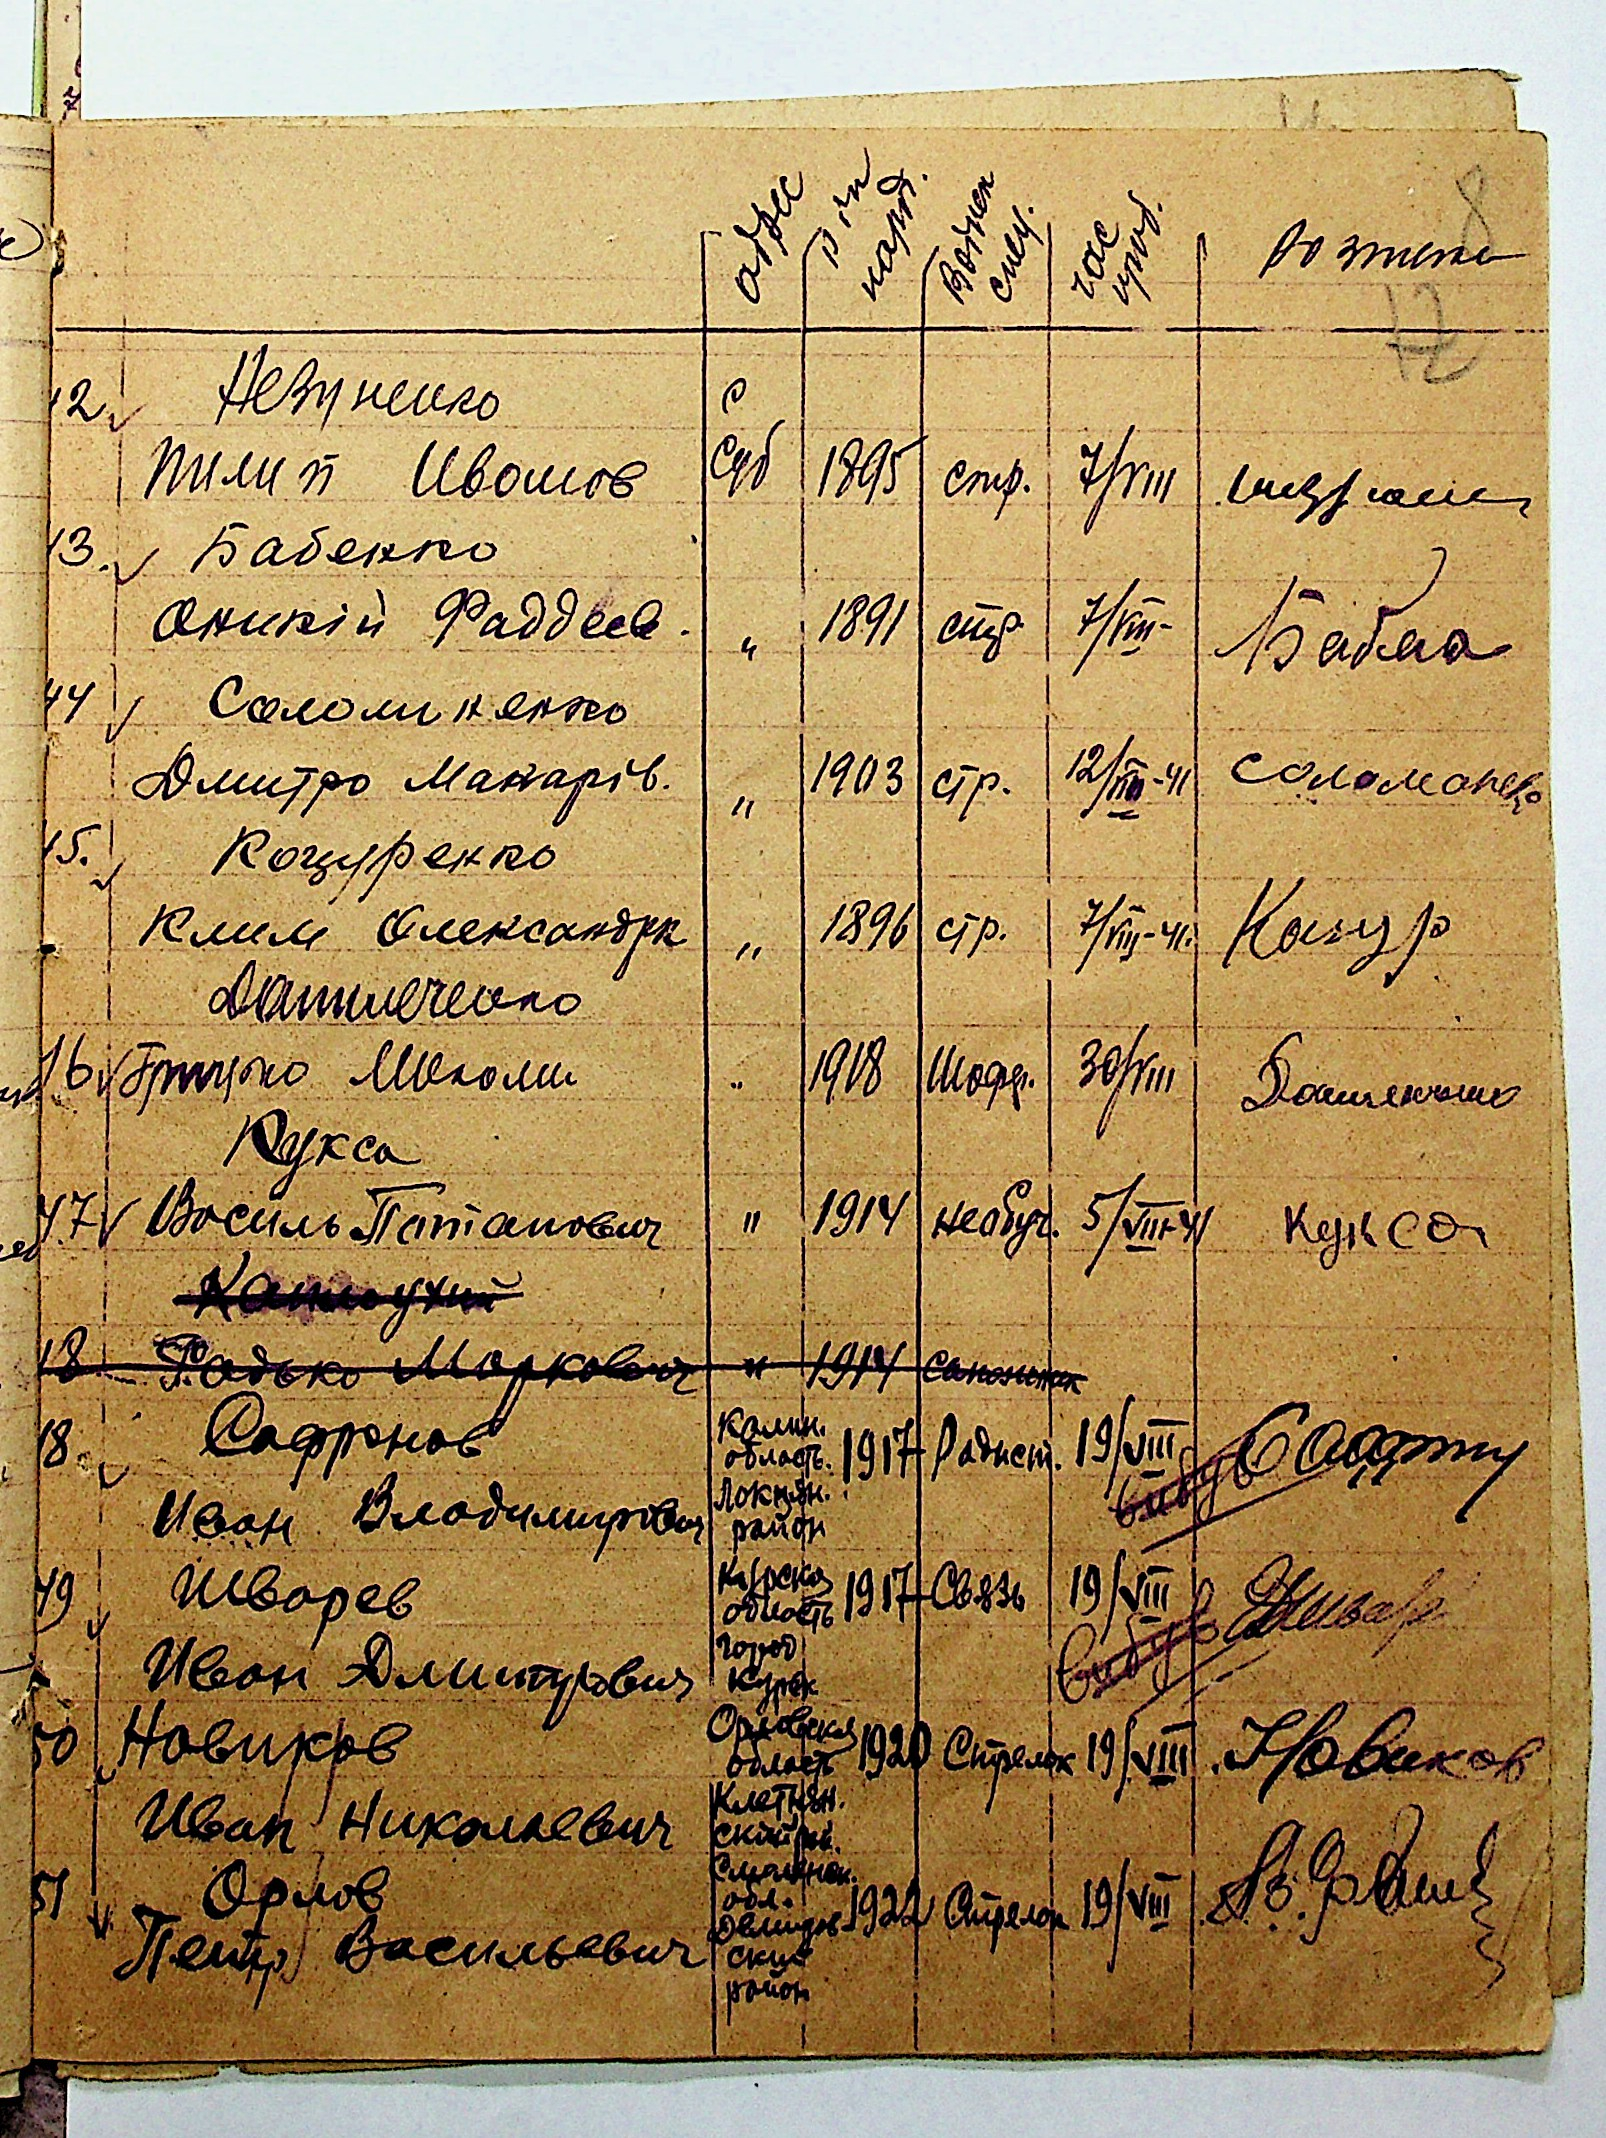 адрес
рік народ.
Воєнн спец.
час приб.
Розписка
8
12
42. Невуненко
с
Пилип Ивонов Суб 1895 стр. 7/VIII
43. Бабенко
Оникій Фаддеев. " 1891 стр. 7/VIII-
44 Соломиненко
Дмитро Макарів. " 1903 стр. 12/VIII-41 Соломоненко
45. Коцуренко
Клим Олександрк " 1896 стр. 7/VIII-41. Коцур
Данилеченко
46 Грицько Миколи " 1918 Шофр. 30/VIII
Кукса
47 Василь Патапович " 1914 необуч. 5/VIII-41 Кукса
Капмоухий
48 Радько Маркович " 1914 сапожник
Сафронов Калин. область. 1917 Радист. 19/VIII
48. Локнян. район вибув
Иван Владимирович
49 Шварев Курская область 1917 Связь 19/VIII Шварев
город Курск вибув
Иван Дмитрович
50 Новиков Орловская область 1920 Стрелок 19/VIII Новиков
Иван Николаевич Клетнян. ский рай.
51 Орлов Смоленск. обл. 1922 Стрелок 19/VIII
Петр Васильевич Демидовский район